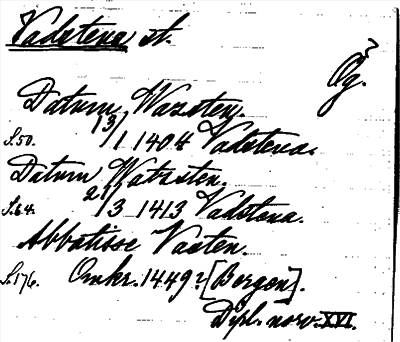 Vadstena st.
Ög.
Datum Wazsten.
S.50. 13/1 1404 Vadstena.
Datum Watzsten.
S.64. 21/3 1413 Vadstena.
Abbatisse Vasten.
S.176. Omkr. 1449? [Bergen].
Dipl. norv. XVI.